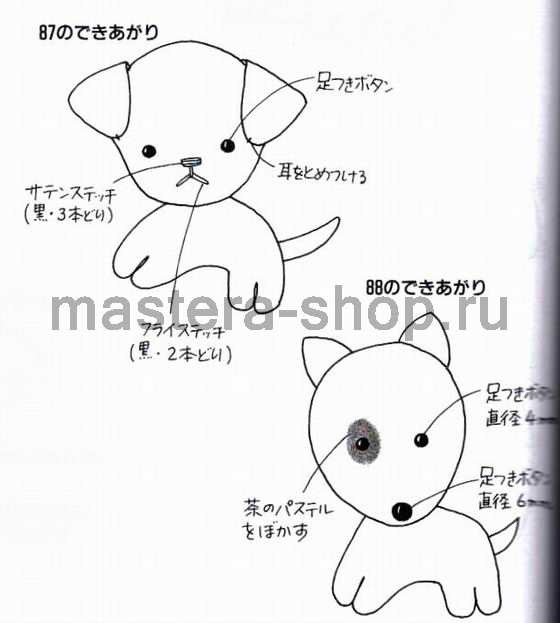 87のできあがり
足つきボタン
耳をとめつける
サテンステッチ
(黒・3本どり)
フライステッチ
(黒・2本どり)
mastera-shop.ru
88のできあがり
足つきボタン
直径4mm
足つきボタン
直径6mm
茶のパステル
をぼかす